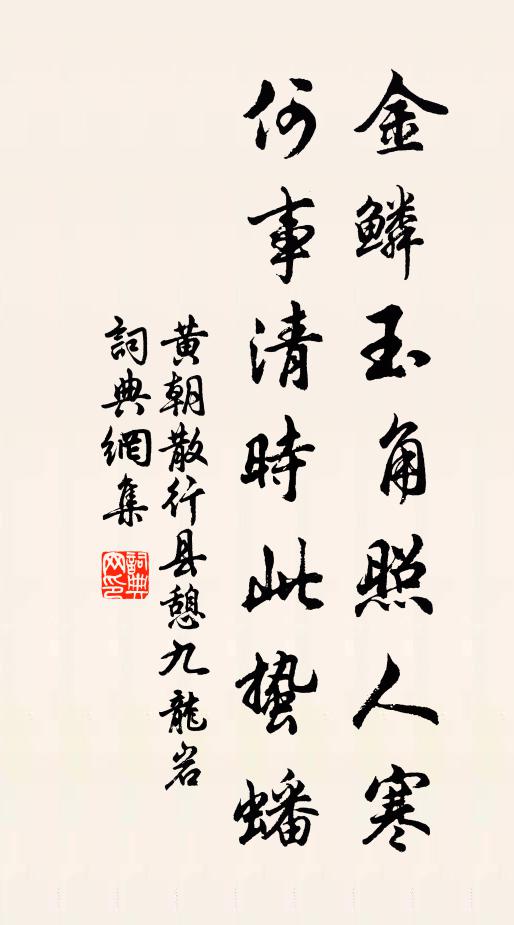 金鳞玉角照人寒
何事清時此蟄蟠
黄朝散行县憩九龍岩
詞典網集
詞典網印